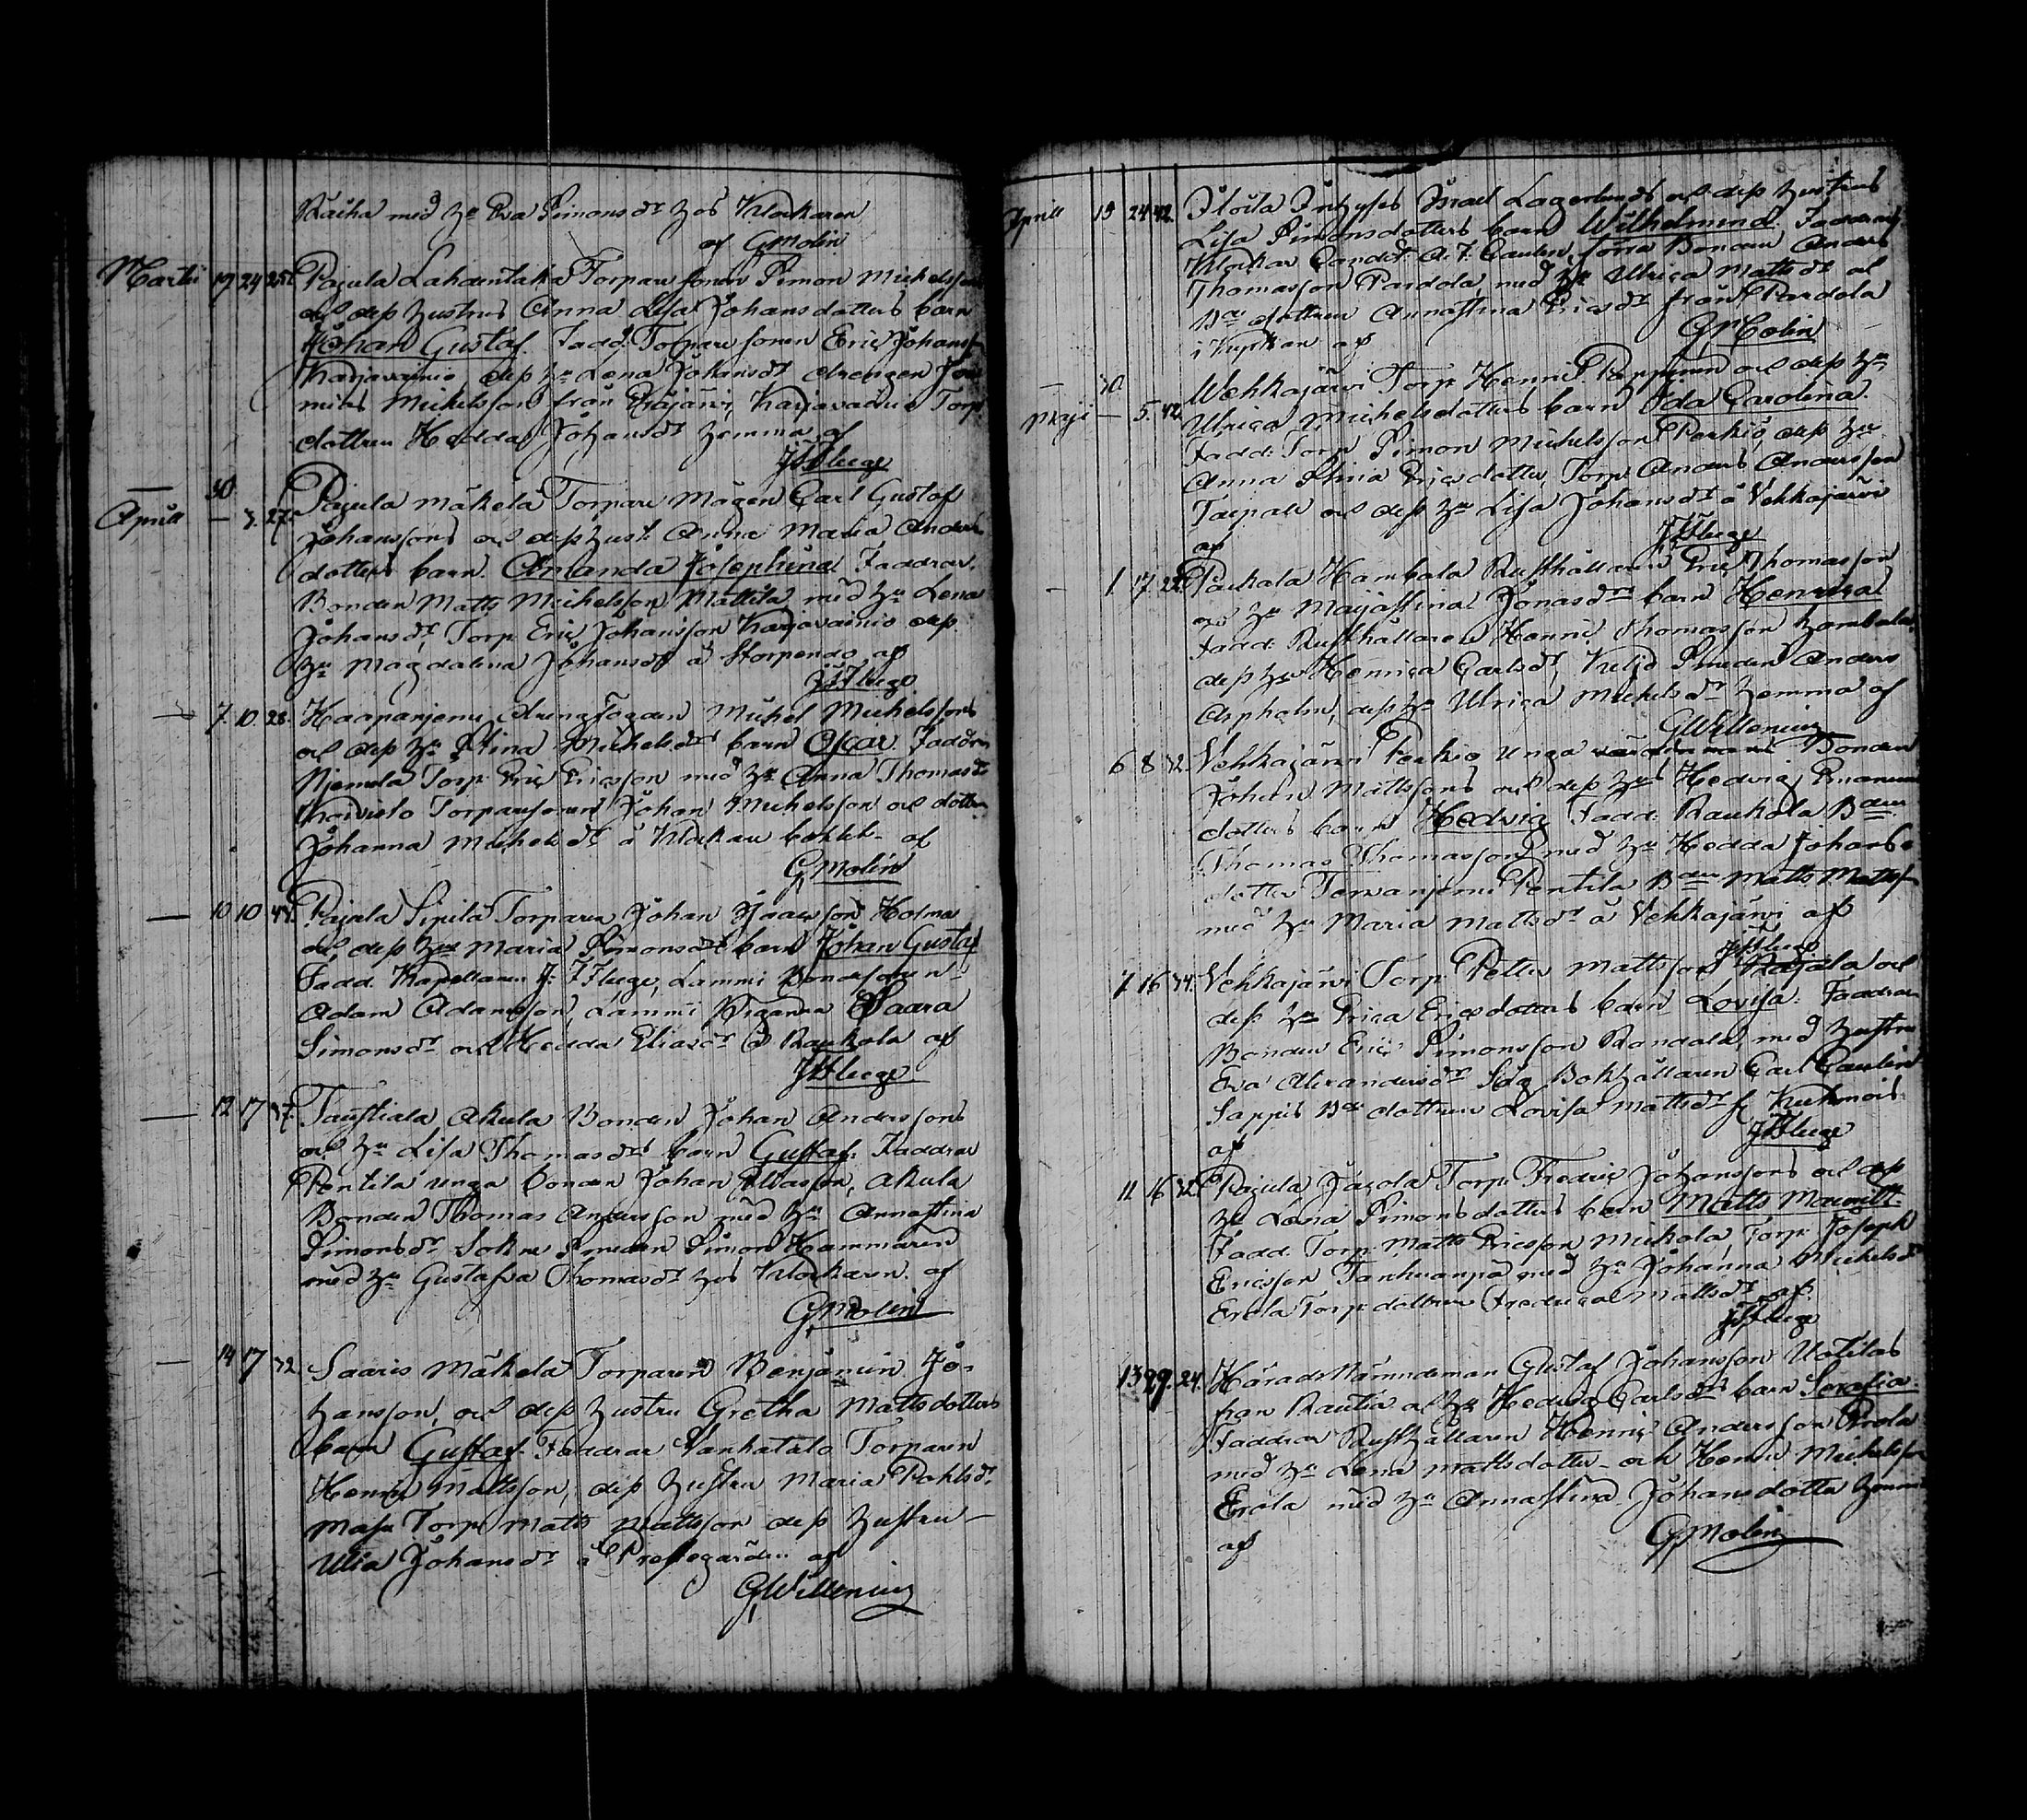 Raiha med hu Eva Simonsdr hos Klockaren
af GMolin
Martii 19 24 25. Pajula Lahdentaka Torpare sonen Simon Michelssons
och dess hustrus Anna Lisa Johansdotters barn
Johan Gustaf. Fadd. Torpare sonen Eric Johansson
Karjavainio, dess hu Lena Johansdr drengen
Michelsson från Eräjärvi, Karjavainio Torp.
dottren Hedda Johansdr hemma af
JFFluge
— 30
Aprill — 3. 27. Pajula Mäkelä Torpare Mågen Carl Gustaf
Johanssons och dess hust. Anna Maria Anders
dotters barn. Amanda Josephina. Faddrar.
Bonden Matts Michelsson Mattila med hu Lena
Johansdr, Torp. Eric Johansson Karjavainio dess
hu Magdalena Johansdr å Storpendo af
JFFluge
— 7. 10. 28. Haapaniemi Michel Michelssons
och dess hu Stina Michelsdrs barn Oscar. Faddrar
Niemelä Torp. Eric Ericsson med hu Anna Thomasdr
Koivisto Torparesonen Johan Michelsson och dottren
Johanna Michelsdr å Klockare bohlet af
GMolin
— 10 10 44. Pajula Sipilä Torparen Johan Isacsson Holma
och dess hus Maria Simonsdrs barn Johan Gustaf
Fadd. Kapellanen J: F Fluge, Lammi Bondesonen
Adam Adamsson, Lammi Pigorna Saara
Simonsdr och Hedda Eliasdr å Raukola af
JFFluge
— 12 17 37. Taustiala Akula Bonden Johan Anderssons
och hu Lisa Thomasdrs barn Gustaf. Faddrar
Pentilä unga bonden Johan Eliasson, Akula
Bonden Thomas Andersson med hu Annastina
Simonsdr Sokne Smeden Simon Hammaren
med hu Gustafva Thomasdr hos Klockaren af
GMolin
— 14 17 32. Saaris Mäkelä Torparen Benjamin Jo-
hansson, och dess hustru Gretha Mattsdotters
barn Gustaf. Faddrar Vanhatalo Torparen
Henric Mattsson, dess hustru Maria
Torp. Matts Mattsson dess hustru
Ulla Johansdr å Prestegården af
GWillenius
Aprill 15 24 42. Floila Inhyses Israel Lagerlunds och dess hustrus
Lisa Simonsdotters barn Wilhelmina. Faddrar
Klockar Bonden Anders
Thomasson Pardola med hu Ulrica Mattsdr och
Bde dottren Annastina Ericsdr från Pardola
i Kyrkan af GMolin
— 30.
Maji — 5. 42. Wehkajärvi Torp. Henric och dess hus
Ulrica Michelsdotters barn Ida Carolina.
Fadd. Torp. Simon Michelsson Perkiö, dess hu
Anna Stina Ericsdotter, Torp. Anders Andersson
Taipale och dess hu Lisa Johansdr å Vehkajärvi
af JFFluge
— 1 17. 22. Paukala Hambala Rusthållaren Eric Thomasson
och hu Majastina Jonasdrs barn Henrica
Fadd. Rusthållaren Henric Thomasson Hambala,
dess hu Henrica Carlsdr, Smeden Anders
Aspholm, dess hu Ulrica Michelsdr hemma af
GWillenius
6 8 32. Vehkajärvi Perkiö unga Bonden
Johan Mattssons och dess hus Hedvig
dotters barn Hedvig Fadd. Raukola Bden
Thomas Thomasson med hu Hedda Johans-
dotter Tervaniemi Pentilä Bden Matts Mattss
med hu Maria Mattsdr å Vehkajärvi af
JFFluge
7. 16 34. Vehkajärvi Torp. Petter Mattsson och
dess hus Erica Ericsdotters barn Lovisa. Faddrar
Bonden Eric Simonsson Randala, med hustru
Eva Alexandersdr Såg Bokhållaren Carl Caulin
Sappis Bde dottren Lovisa Mattsdr fr. Kuhmois
af JFFluge
11 16 32. Pajula Jacola Torp. Fredric Johanssons och dess
hu Lena Simonsdotters barn Matts Mauritz.
Fadd. Torp. Matts Ericsson Mickola, Torp. Joseph
Ericsson Tanhuanpä med hu Johanna Michelsdr
Erola Torp dottren Fredrica Mattsdr af
JFFluge
13 29. 24. Härads Nämndeman Gustaf Johansson Uotilas
från Rautia och hu Hedvig Carlsdrs barn Serafia.
Faddrar Rusthållaren Henric Andersson Erola
med hu Lena Mattsdotter och Henric Michelsson
Erola med hu Annastina Johansdotter hemma
af GMolin